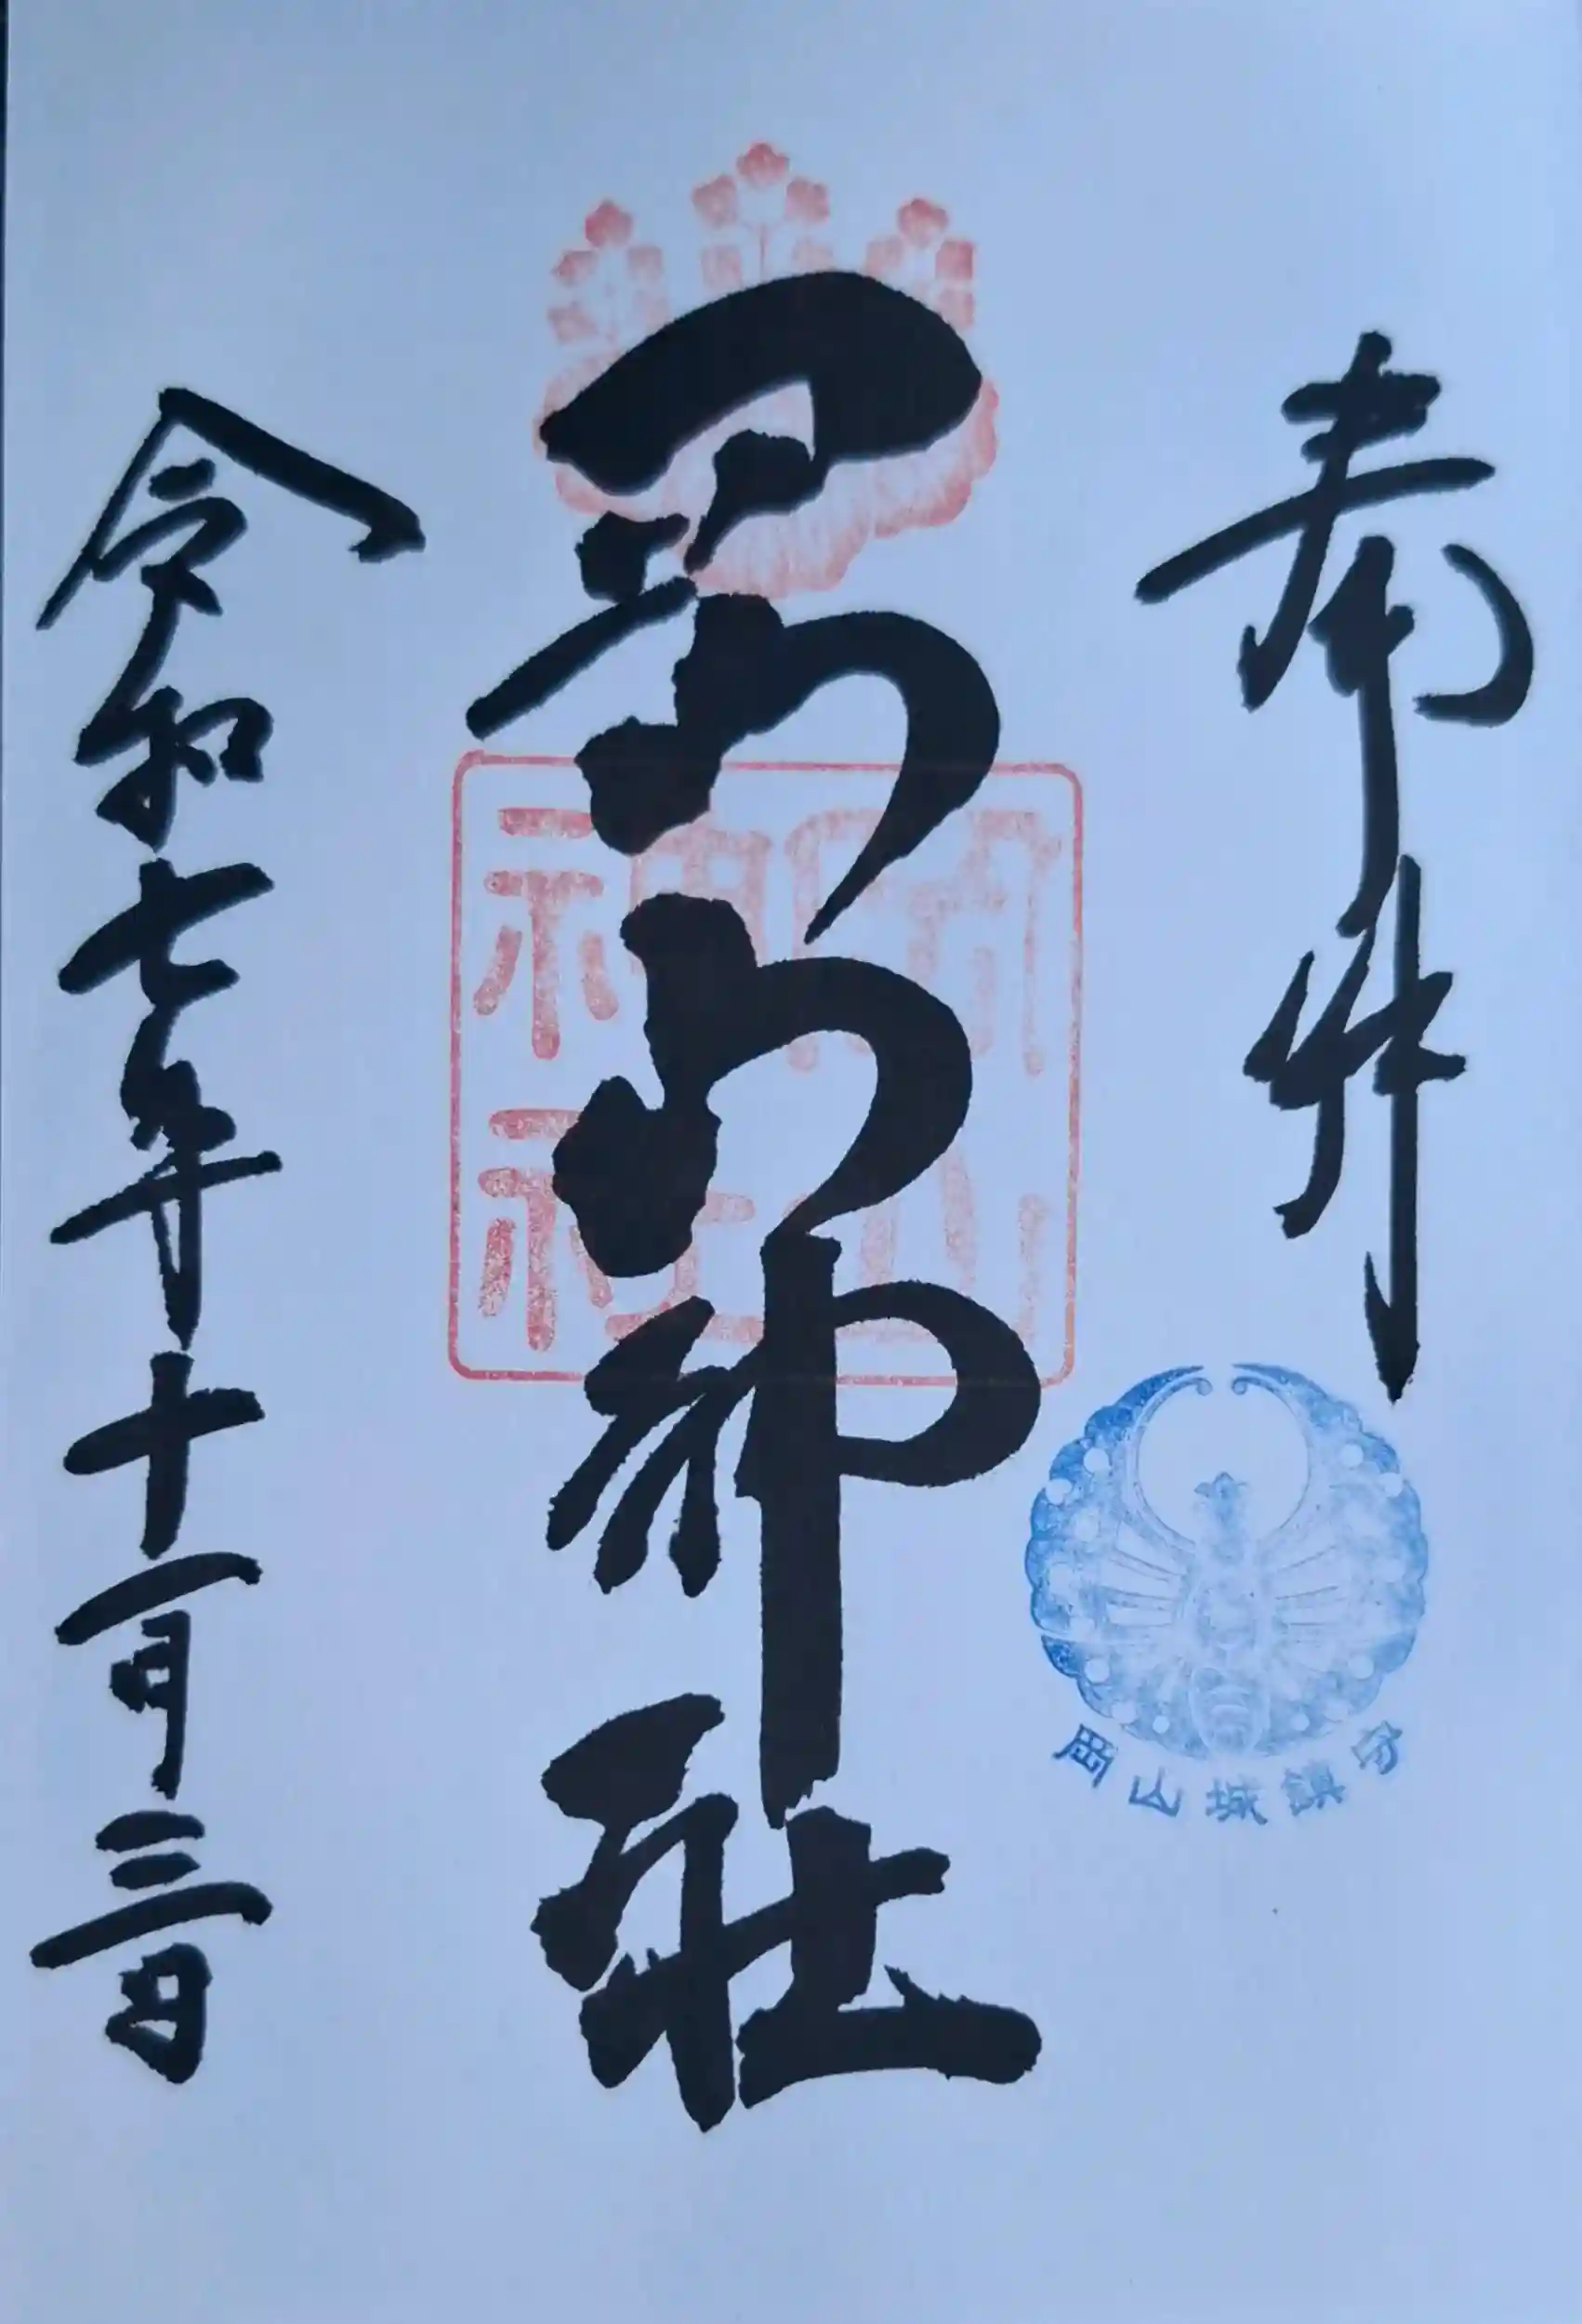 奉拝
岡山神社
令和七年十一月三日
岡山神社
岡山城鎮守